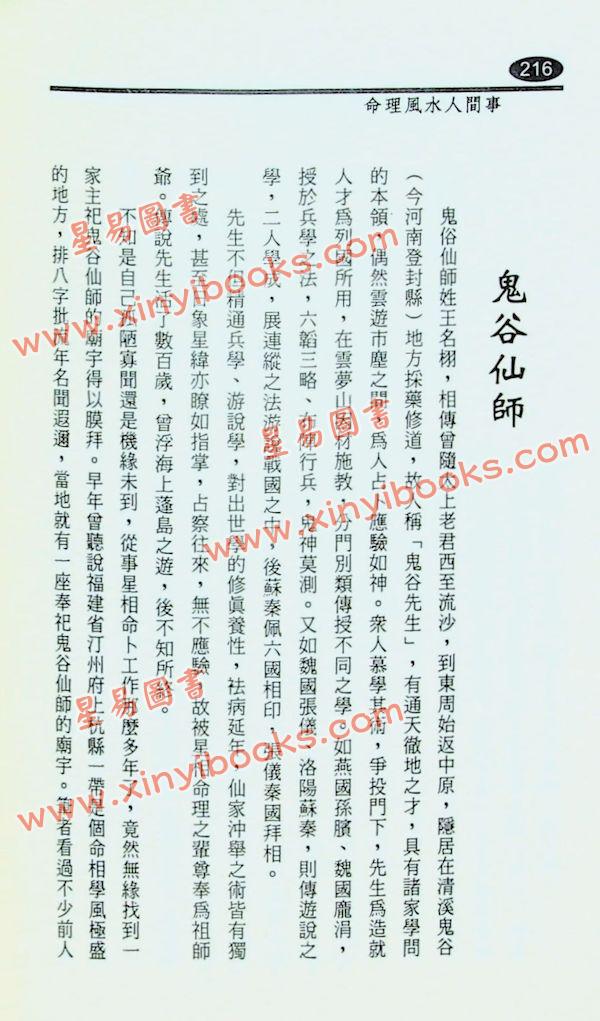 216
命理風水人間事
鬼谷仙師
鬼俗仙師姓王名栩，相傳曾隨太上老君西至流沙，到東周始返中原，隱居在清溪鬼谷
（今河南登封縣）地方採藥修道，故人稱「鬼谷先生」，有通天徹地之才，具有諸家學問
的本領，偶然雲遊市塵之間，爲人占卜應驗如神。衆人慕學其術，爭投門下，先生爲造就
人才爲列國所用，在雲夢山因材施教，分門別類傳授不同之學。如燕國孫臏、魏國龐涓，
授於兵學之法，六韜三略、布陣行兵，鬼神莫測。又如魏國張儀、洛陽蘇秦，則傳遊說之
學，二人學成，展連縱之法游說戰國之中，後蘇秦佩六國相印，張儀秦國拜相。
先生不但精通兵學、游說學，對出世學的修眞養性，袪病延年，仙家沖舉之術皆有獨
到之處，甚至日象星緯亦瞭如指掌，占察往來，無不應驗，故被星相命理之輩尊奉爲祖師
爺。傳說先生活了數百歲，曾浮海上蓬島之遊，後不知所終。
不知是自己孤陋寡聞還是機緣未到，從事星相命卜工作那麼多年了，竟然無緣找到一
家主祀鬼谷仙師的廟宇得以膜拜。早年曾聽說福建省汀州府上杭縣一帶是個命相學風極盛
的地方，排八字批流年名聞遐邇，當地就有一座奉祀鬼谷仙師的廟宇。筆者看過不少前人
星易圖書
www.xinyibooks.com
星易圖書
www.xinyibooks.com
星易圖書
www.xinyibooks.com